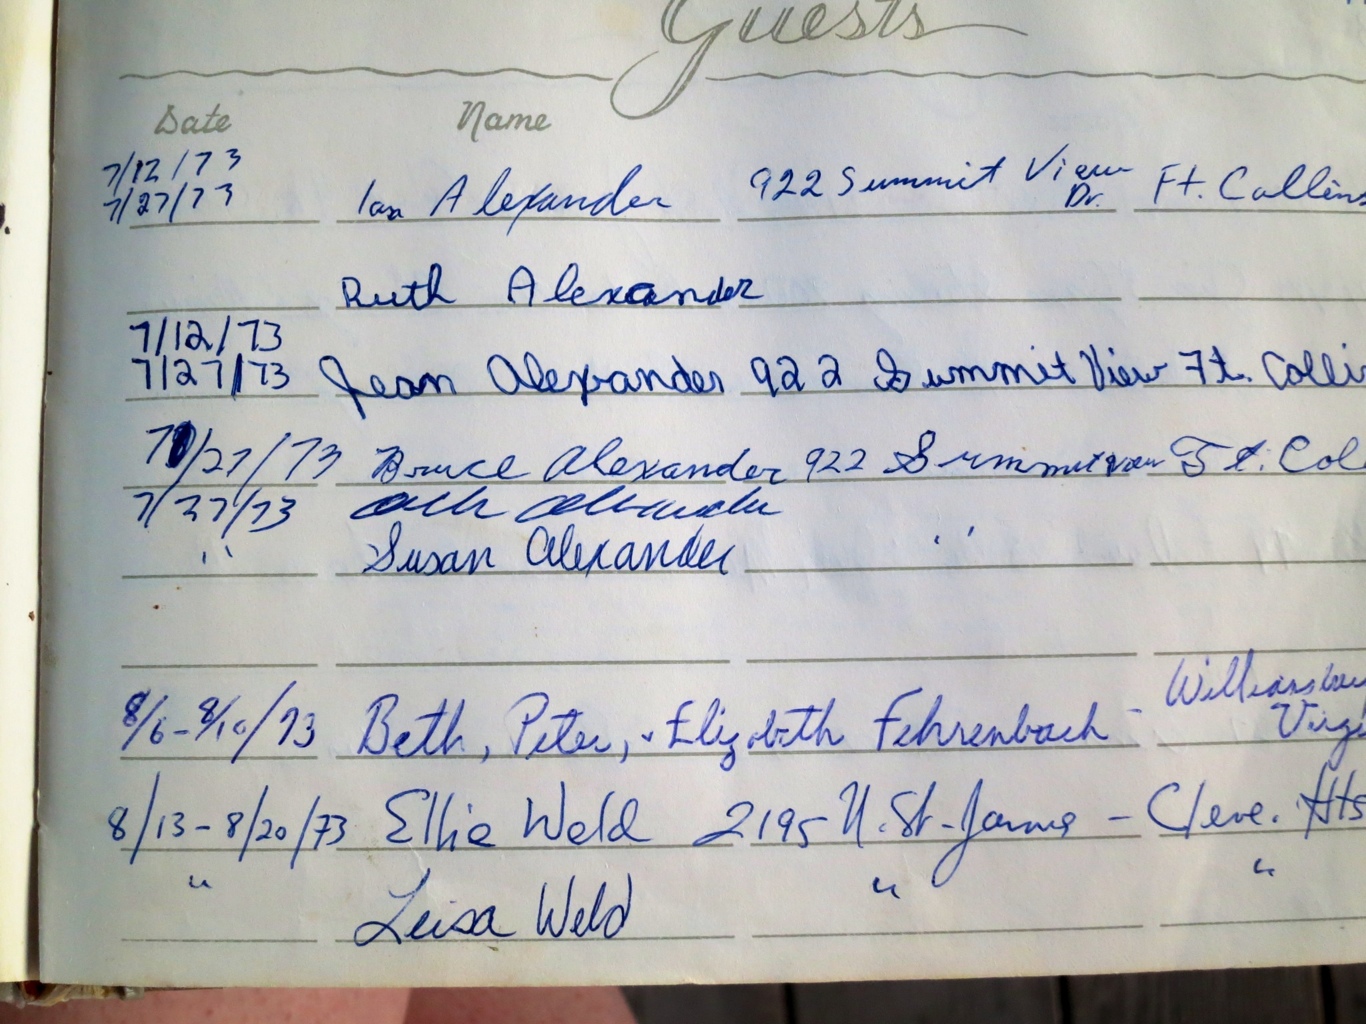 Guests
Date Name
7/12/73
7/27/73 Ian Alexander 922 Summit View Dr. Ft. Collins
Ruth Alexander
7/12/73
7/27/73 Jean Alexander 922 Summit View Ft. Colli
7/27/73 Bruce Alexander 922 Summitview Ft. Col
7/27/73 Alexander
" Susan Alexander "
8/6-8/10/73 Beth, Peter, + Elizabeth Fehrenbach - Williamsbu
Virgi
8/13-8/20/73 Ellie Weld 2195 N. St. James - Cleve. Hts
" Leisa Weld " "